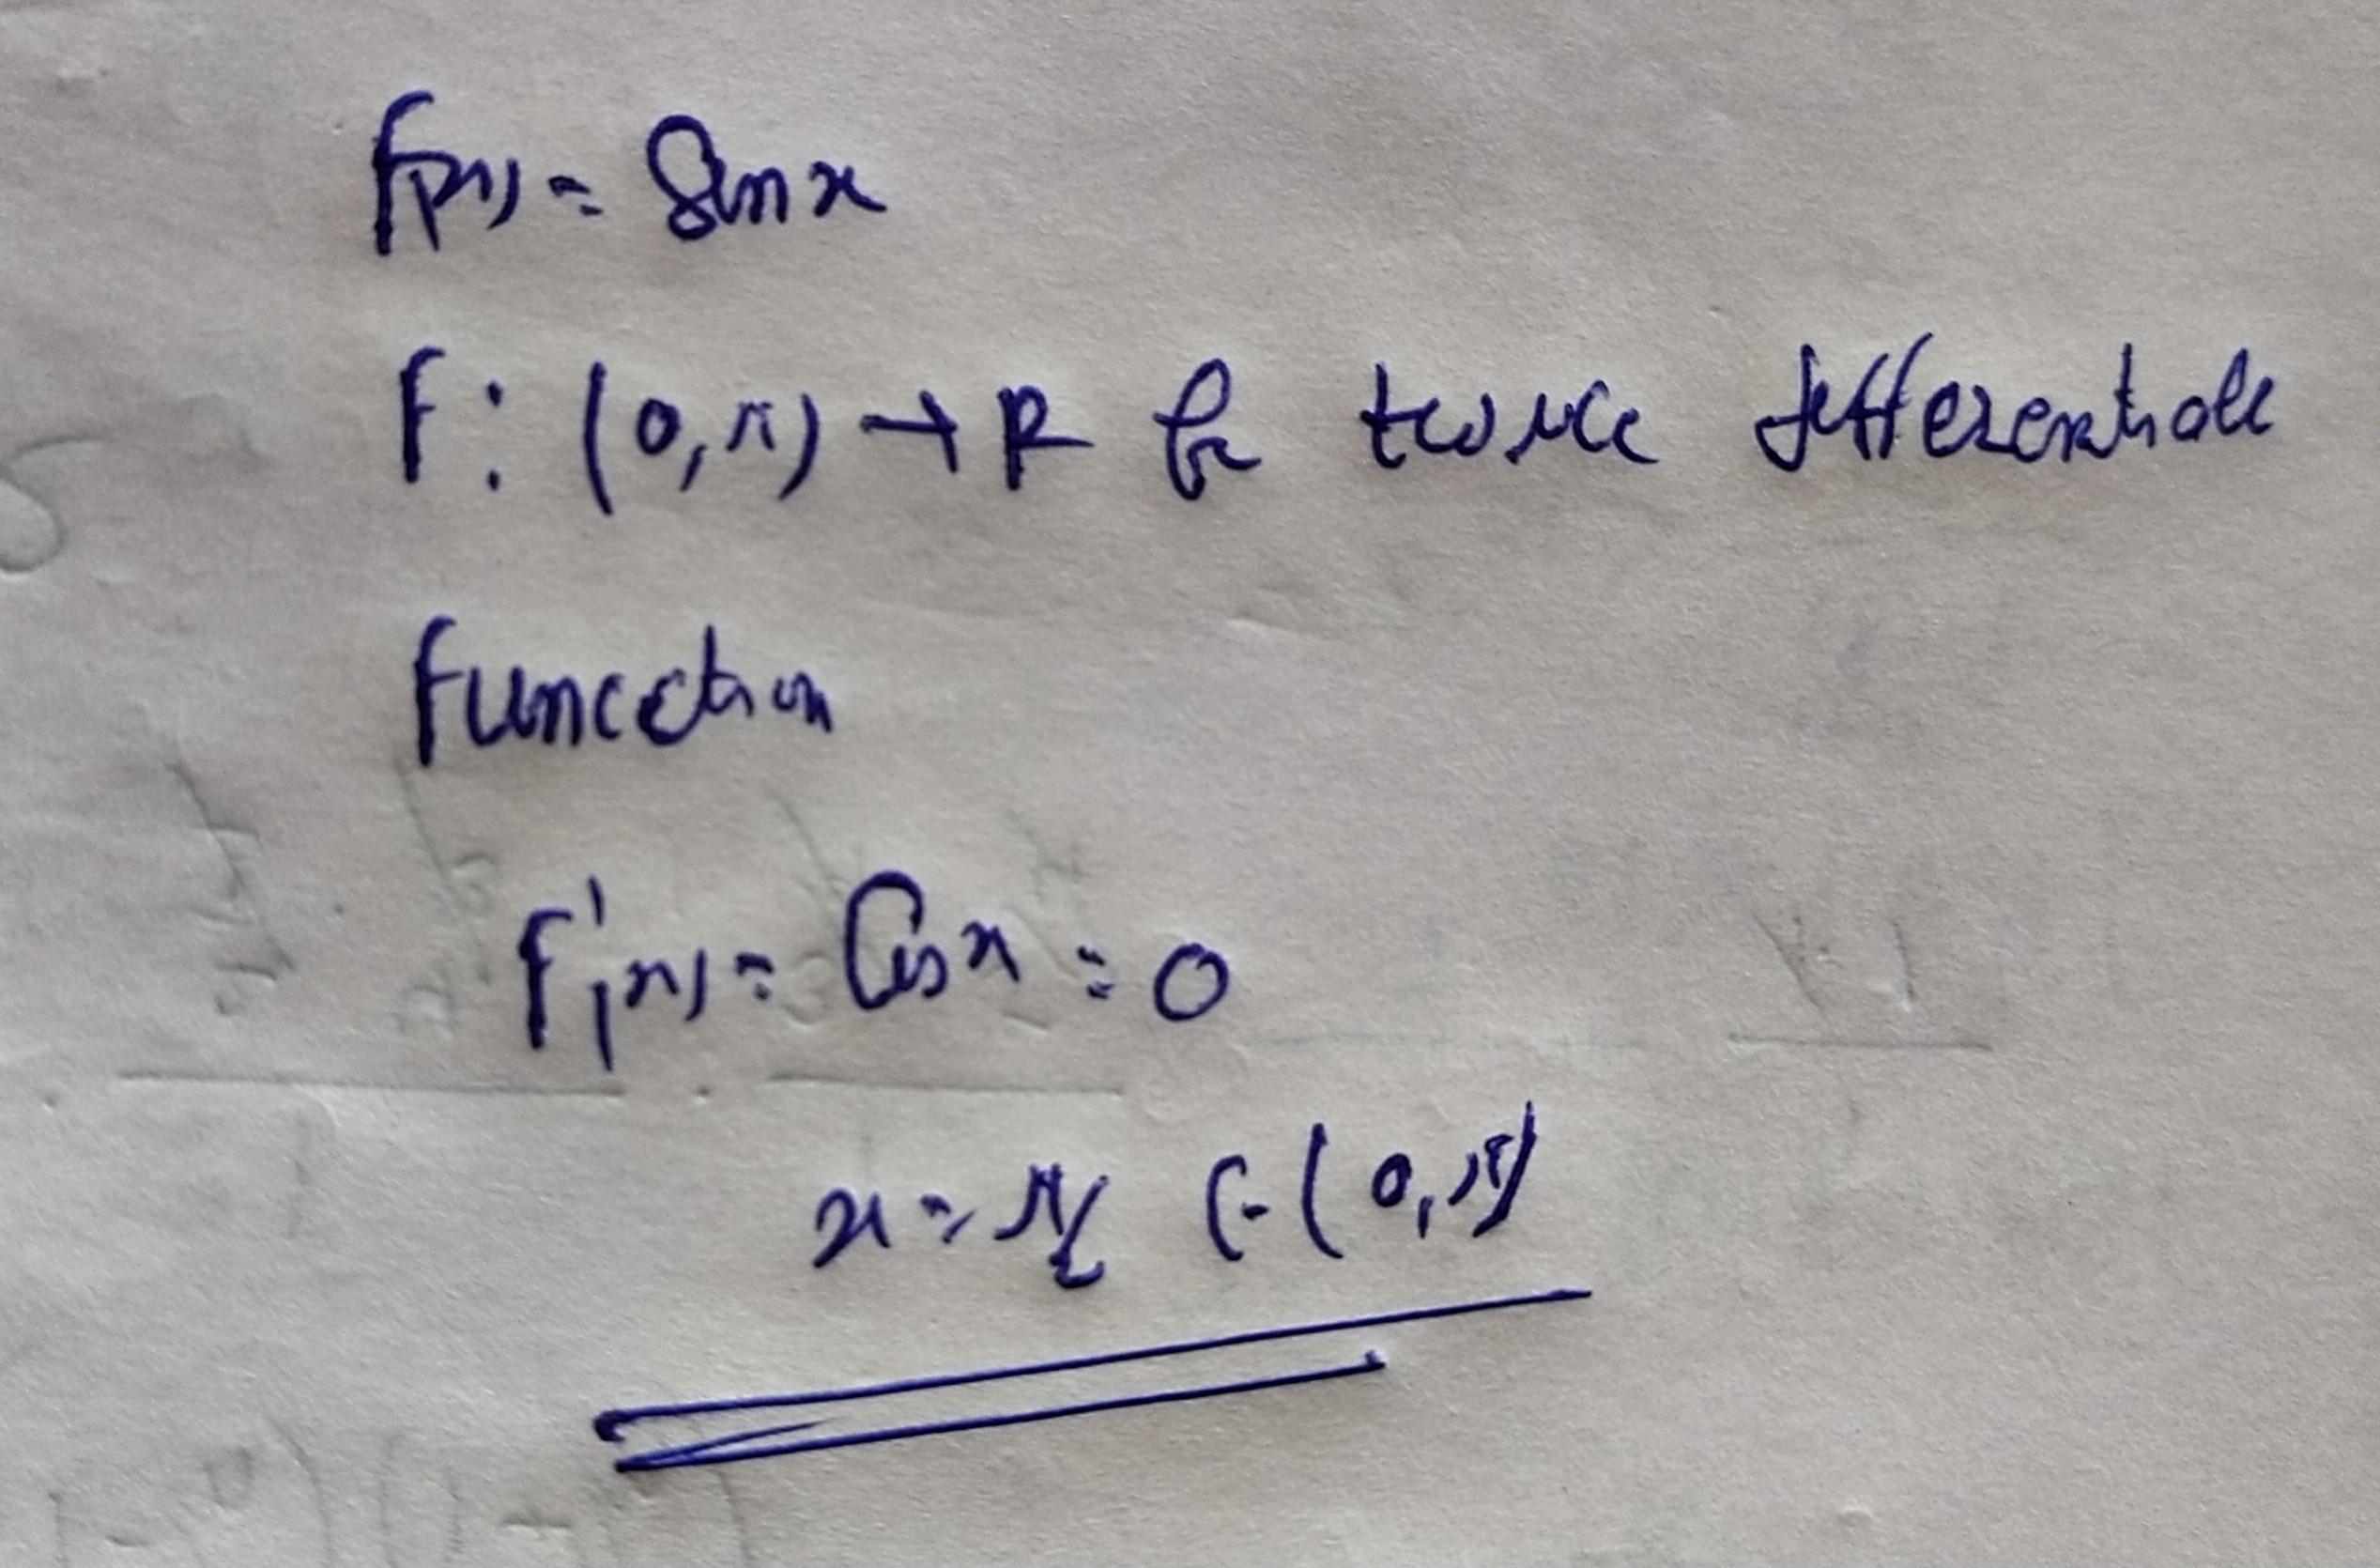 f(x) = Sin x
f : (0, π) → R be twice differentiable
function
f'(x) = Cos x = 0
x = π/2 ∈ (0, π)